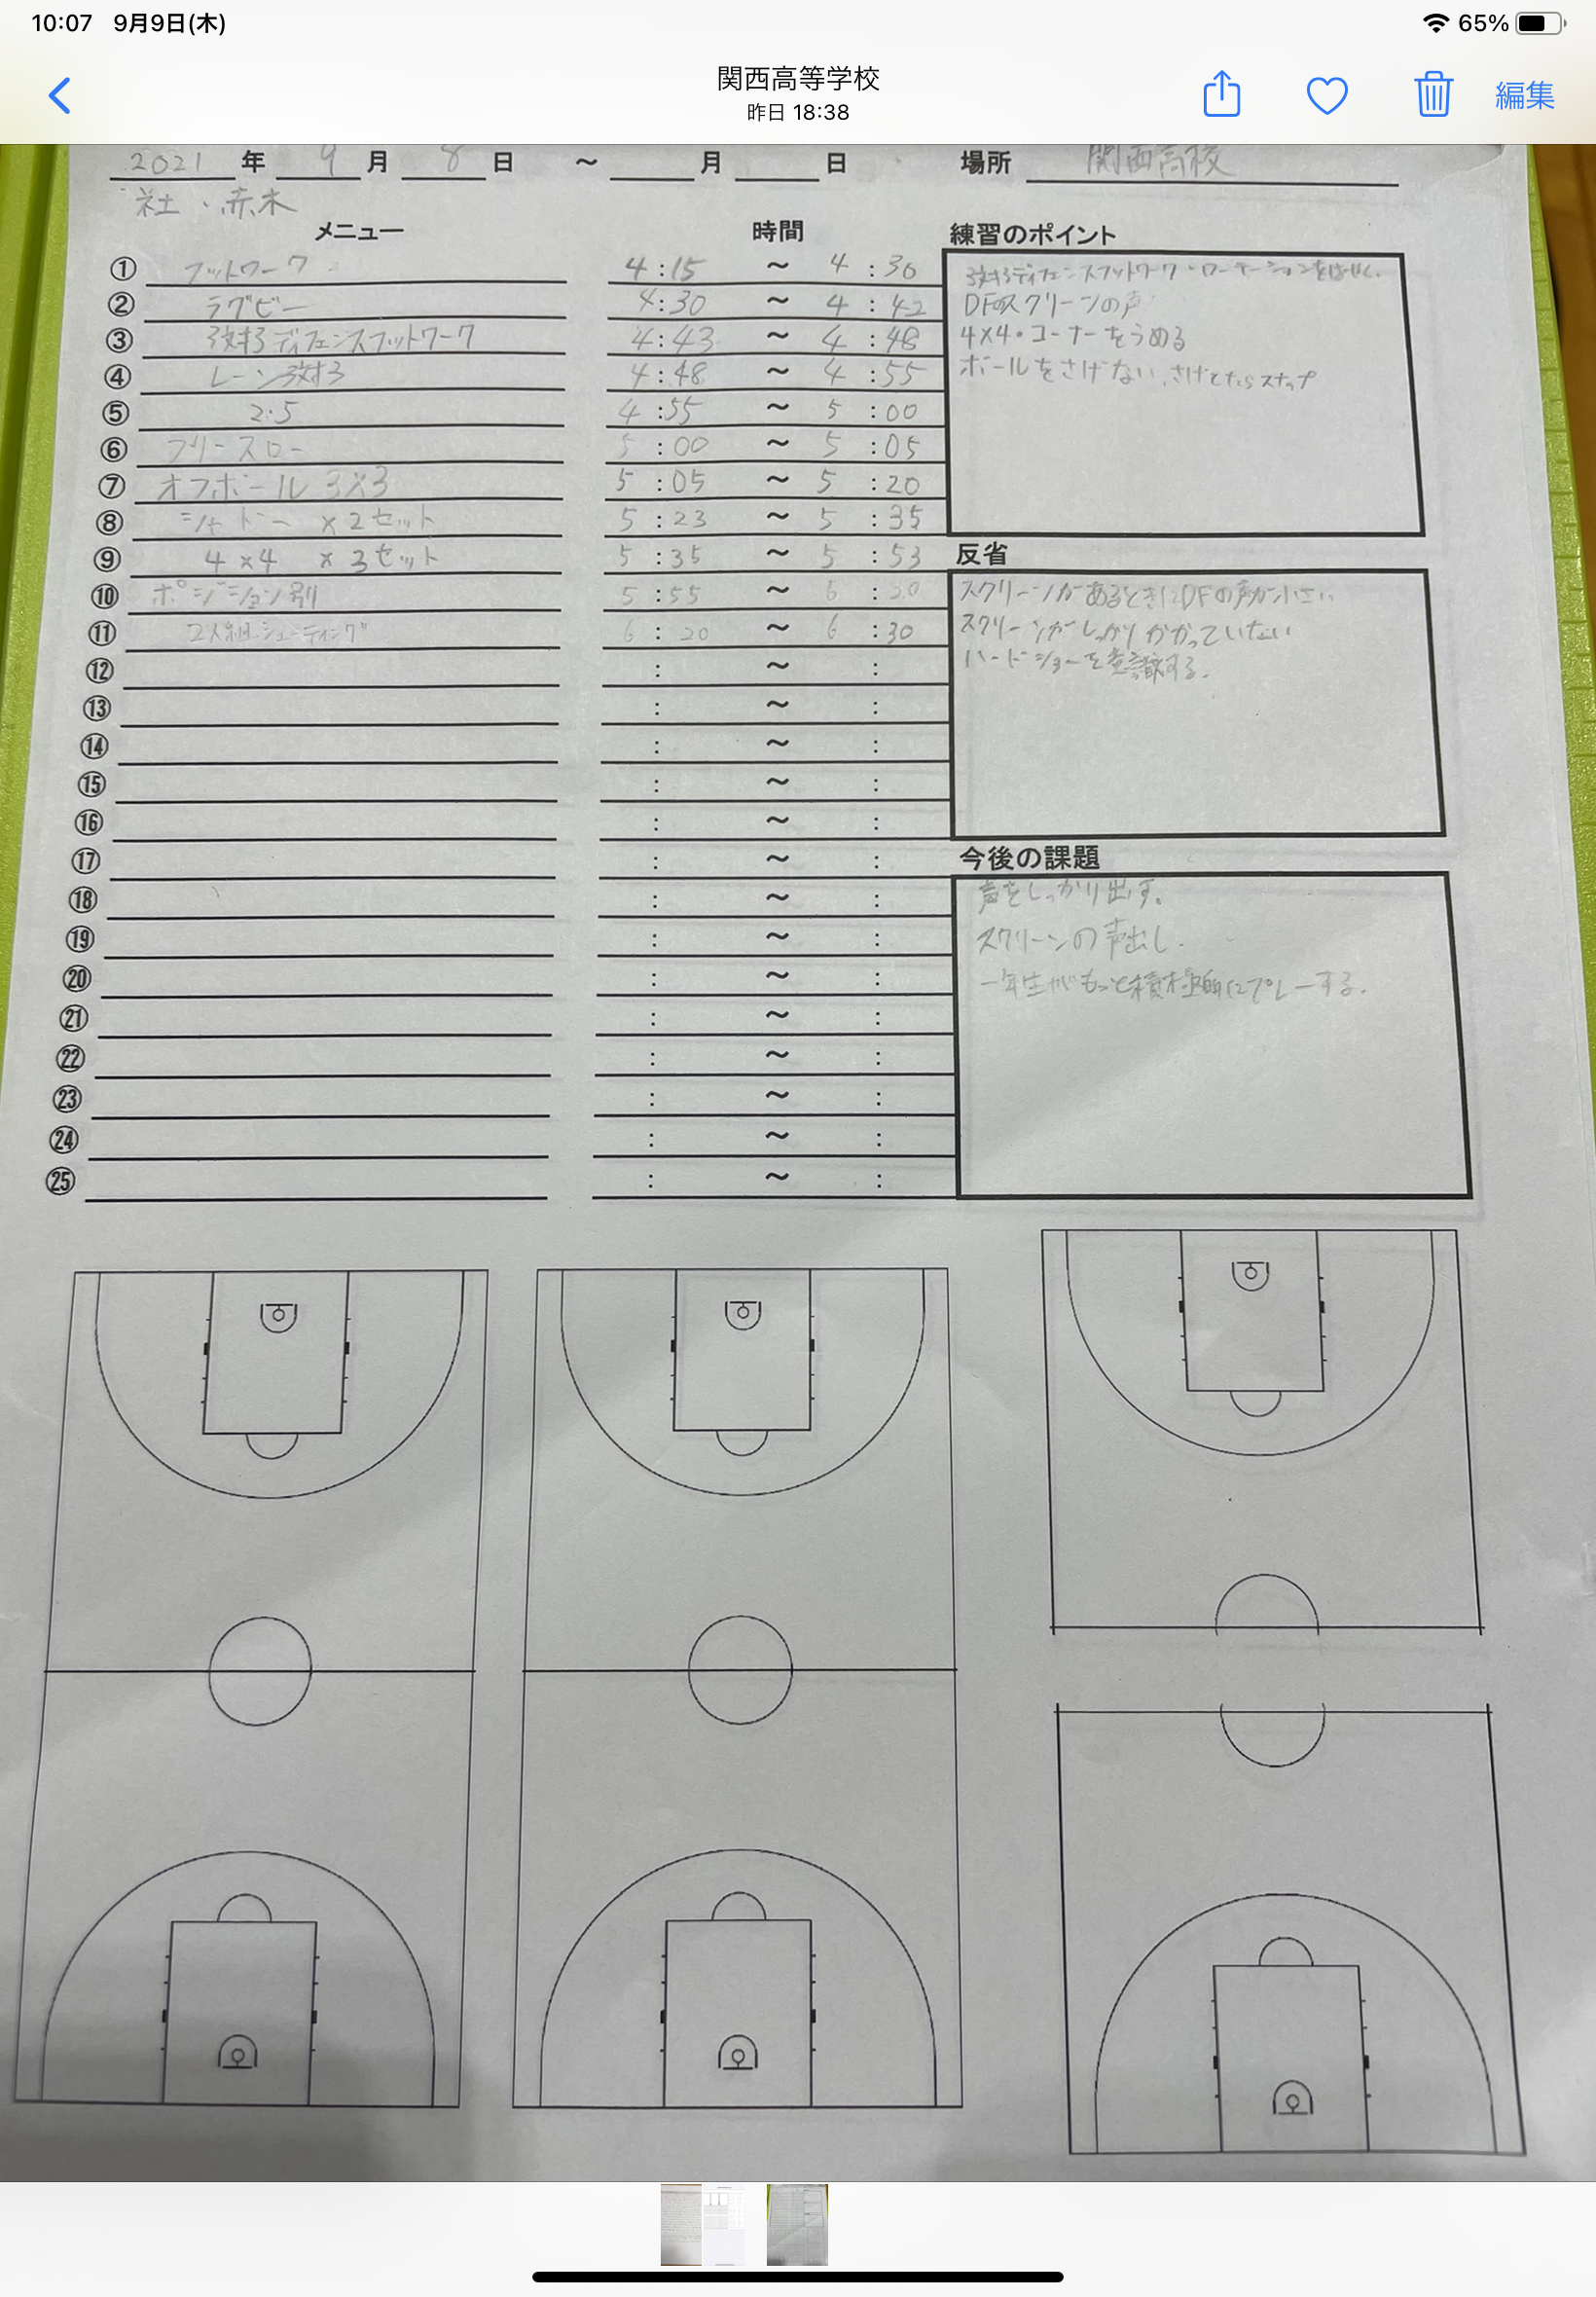 10:07 9月9日(木) 65%
関西高等学校
昨日 18:38
編集
2021 年 9 月 8 日 ～ 月 日 場所 関西高校
社・赤木
メニュー 時間
① フットワーク 4:15 ～ 4:30
② ラグビー 4:30 ～ 4:42
③ 3対3ディフェンスフットワーク 4:43 ～ 4:48
④ レーン3対3 4:48 ～ 4:55
⑤ 2.5 4:55 ～ 5:00
⑥ フリースロー 5:00 ～ 5:05
⑦ オフボール 3×3 5:05 ～ 5:20
⑧ シャドー ×2セット 5:23 ～ 5:35
⑨ 4×4 ×3セット 5:35 ～ 5:53
⑩ ポジション別 5:55 ～ 6:20
⑪ 2人組シューティング 6:20 ～ 6:30
⑫ : ～ :
⑬ : ～ :
⑭ : ～ :
⑮ : ～ :
⑯ : ～ :
⑰ : ～ :
⑱ : ～ :
⑲ : ～ :
⑳ : ～ :
㉑ : ～ :
㉒ : ～ :
㉓ : ～ :
㉔ : ～ :
㉕ : ～ :
練習のポイント
3対3ディフェンスフットワーク・ローテーションをはやく.
DFのスクリーンの声
4×4・コーナーをうめる
ボールをさげない.さげたらスナップ
反省
スクリーンがあるときにDFの声が小さい
スクリーンがしっかりかかっていない
ハードショーを意識する.
今後の課題
声をしっかり出す.
スクリーンの声出し.
一年生がもっと積極的にプレーする.